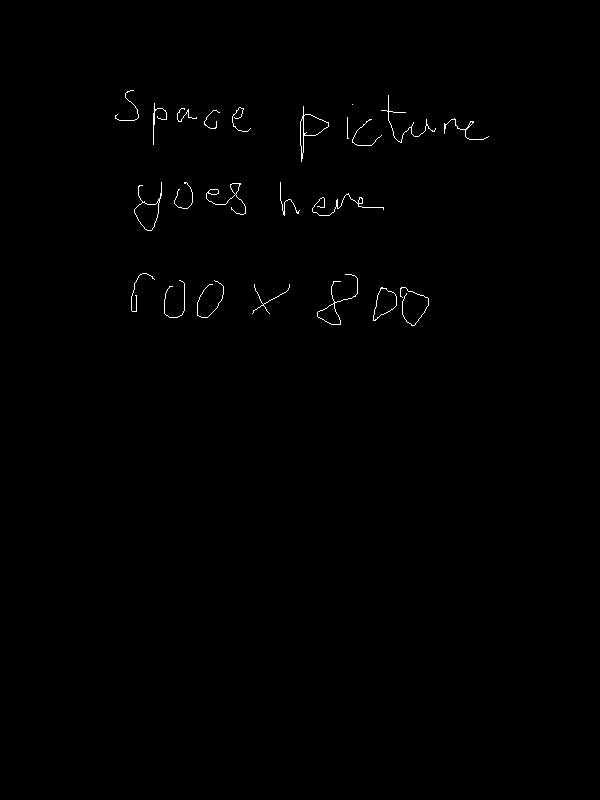 space picture
goes here
600 x 800